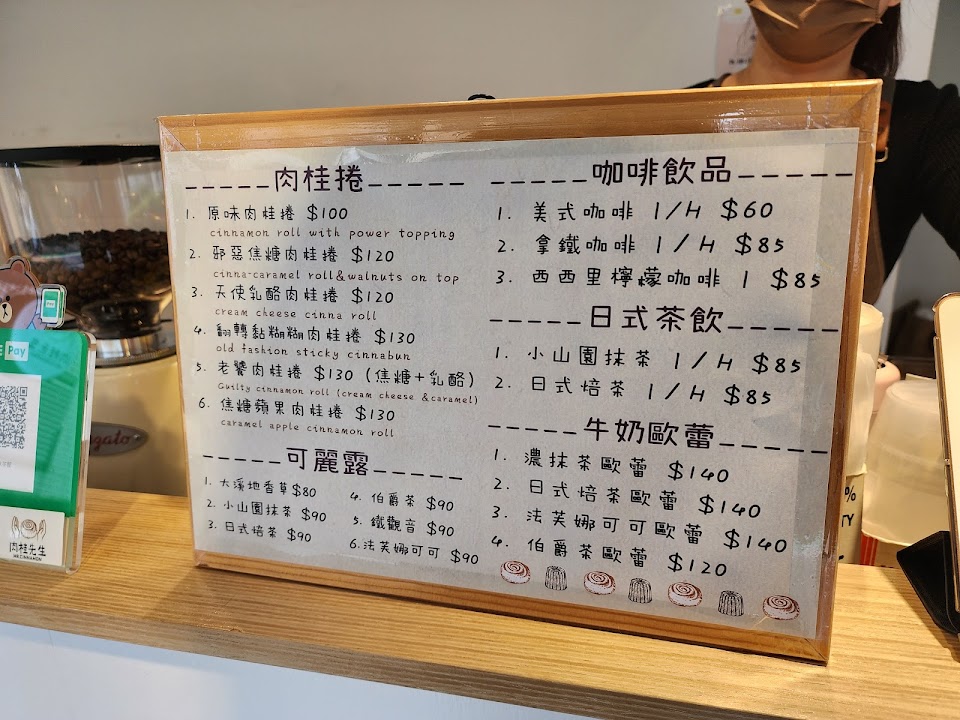 -----肉桂捲-----
1. 原味肉桂捲 $100
cinnamon roll with power topping
2. 邪惡焦糖肉桂捲 $120
cinna-caramel roll&walnuts on top
3. 天使乳酪肉桂捲 $120
cream cheese cinna roll
4. 翻轉黏糊糊肉桂捲 $130
old fashion sticky cinnabun
5. 老饕肉桂捲 $130 (焦糖+乳酪)
Guilty cinnamon roll (cream cheese &caramel)
6. 焦糖蘋果肉桂捲 $130
caramel apple cinnamon roll
-----可麗露-----
1. 大溪地香草$80
2. 小山園抹茶 $90
3. 日式焙茶 $90
4. 伯爵茶 $90
5. 鐵觀音 $90
6.法芙娜可可 $90
-----咖啡飲品-----
1. 美式咖啡 I/H $60
2. 拿鐵咖啡 I/H $85
3. 西西里檸檬咖啡 I $85
-----日式茶飲-----
1. 小山園抹茶 I/H $85
2. 日式焙茶 I/H $85
-----牛奶歐蕾-----
1. 濃抹茶歐蕾 $140
2. 日式焙茶歐蕾 $140
3. 法芙娜可可歐蕾 $140
4. 伯爵茶歐蕾 $120
E Pay
肉桂先生
MR.CINNAMON
gato
%
TY